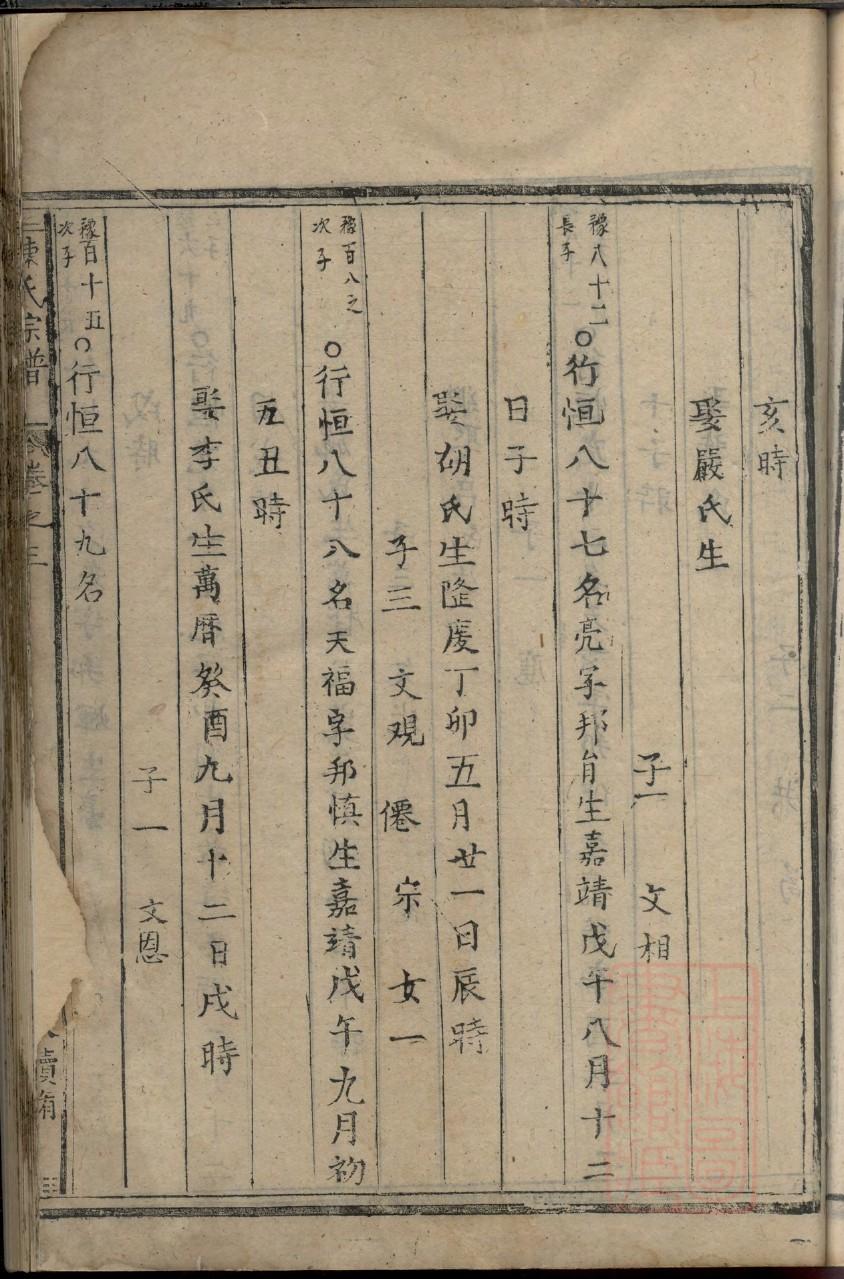 亥時
娶嚴氏生
子一 文相
豫八十二
長子
○行恒八十七名亮字邦自生嘉靖戊午八月十二
日子時
娶胡氏生隆慶丁卯五月廿一日辰時
子三 文观 僊 宗 女一
豫百八之
次子
○行恒八十八名天福字邦慎生嘉靖戊午九月初
五丑時
娶李氏生萬曆癸酉九月十二日戌時
子一 文恩
豫百十五
次子
○行恒八十九名
陳氏宗譜 卷之三 續脩